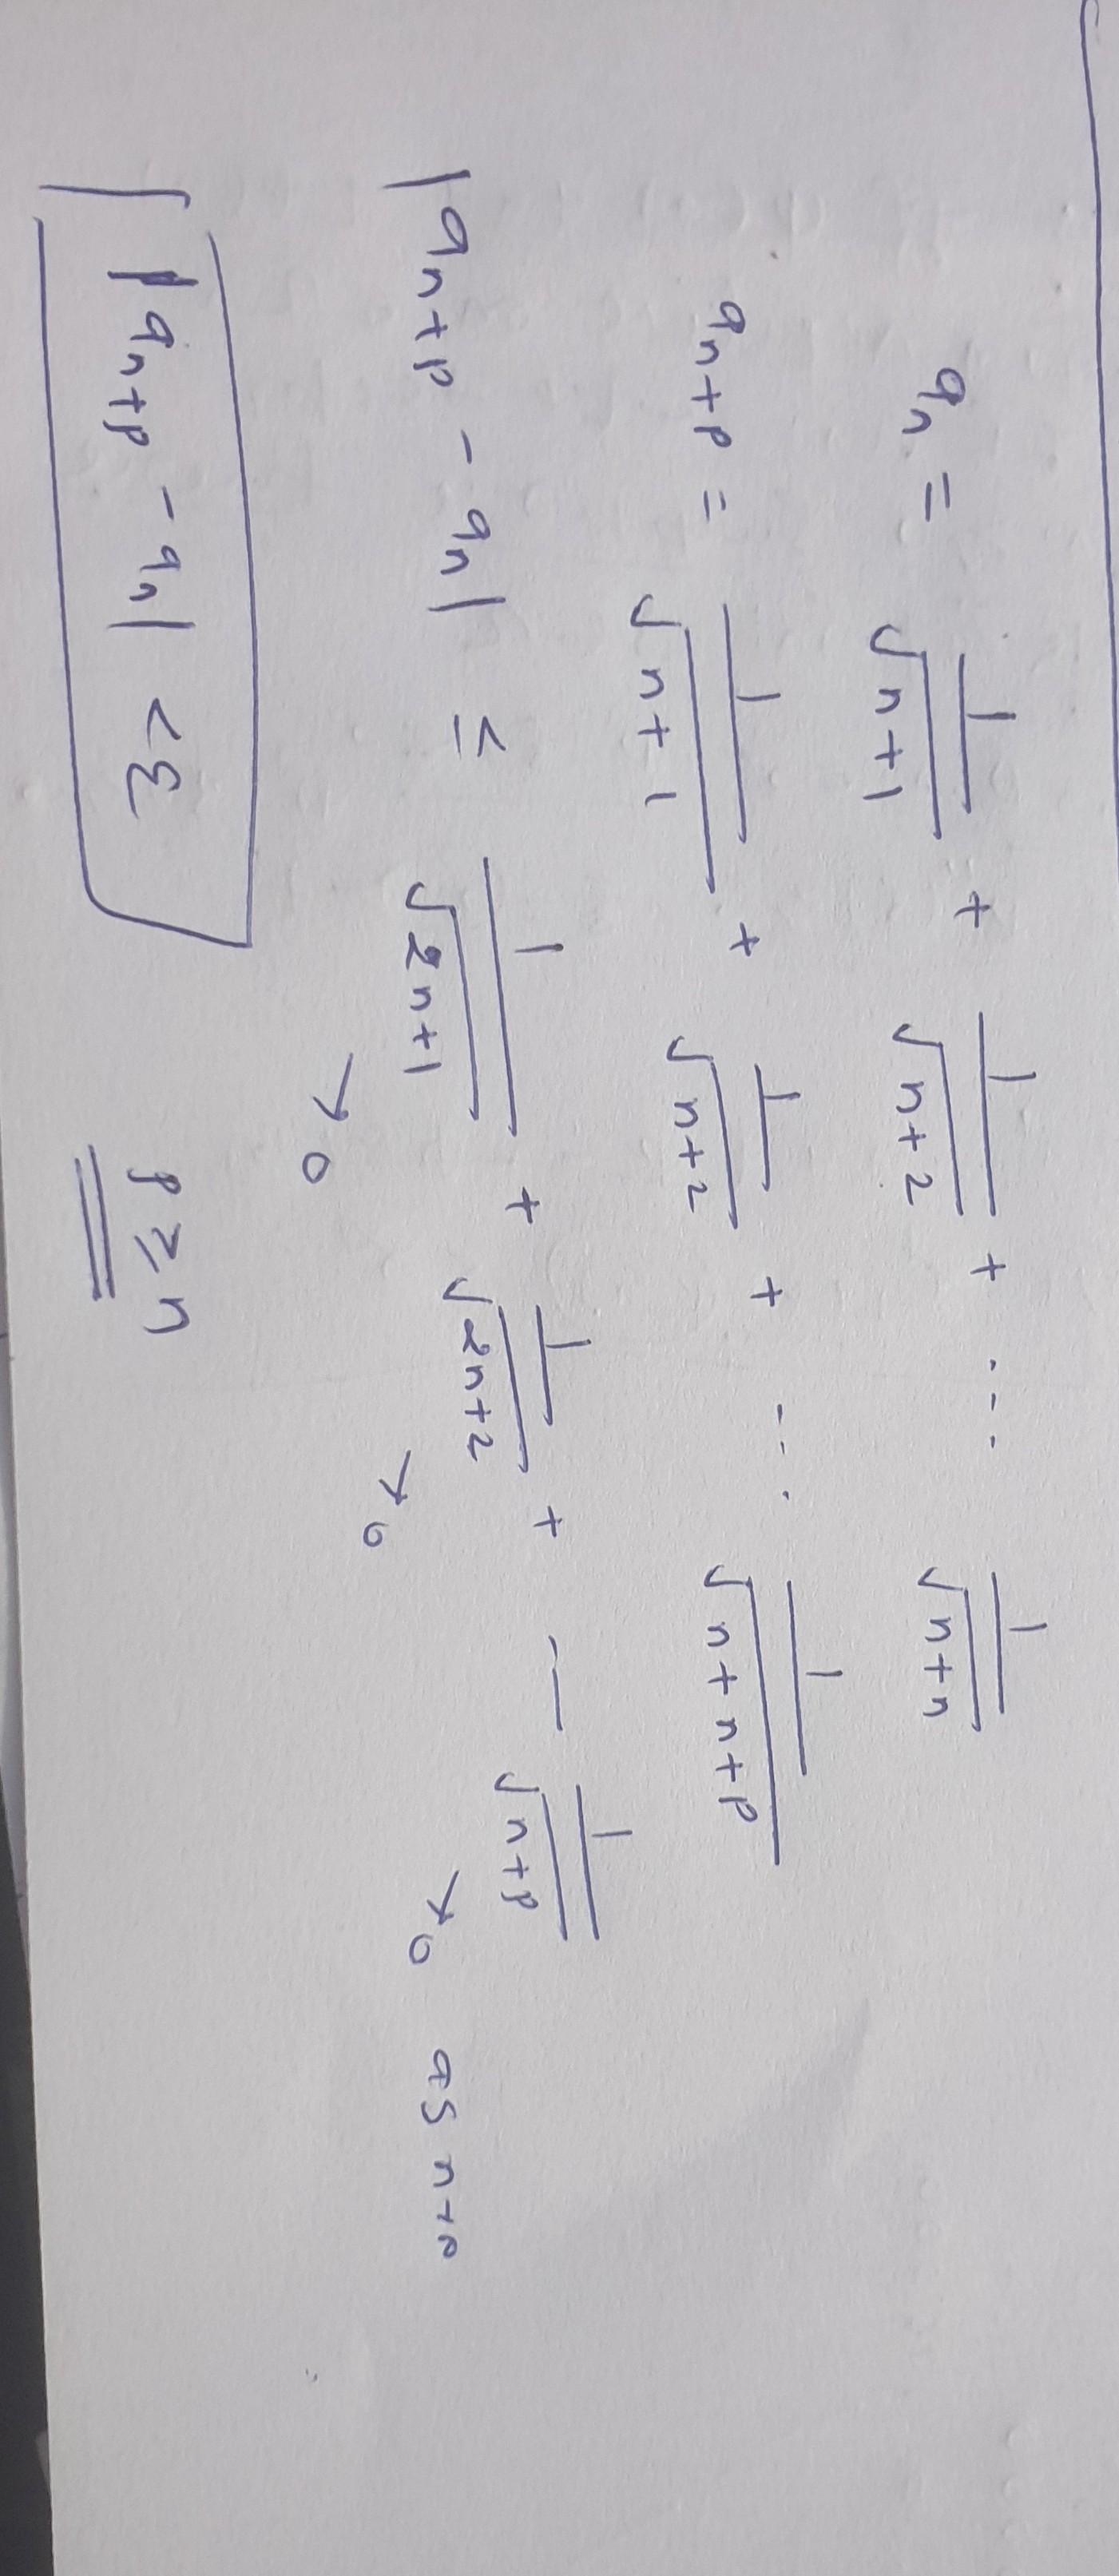 aₙ = 1/√(n+1) + 1/√(n+2) + ... 1/√(n+n)
aₙ₊ₚ = 1/√(n+1) + 1/√(n+2) + ... 1/√(n+n+p)
|aₙ₊ₚ - aₙ| ≤ 1/√(2n+1) + 1/√(2n+2) + -- 1/√(n+p)
↘0 ↘0 ↘0 as n→∞
|aₙ₊ₚ - aₙ| < ε p ≥ n